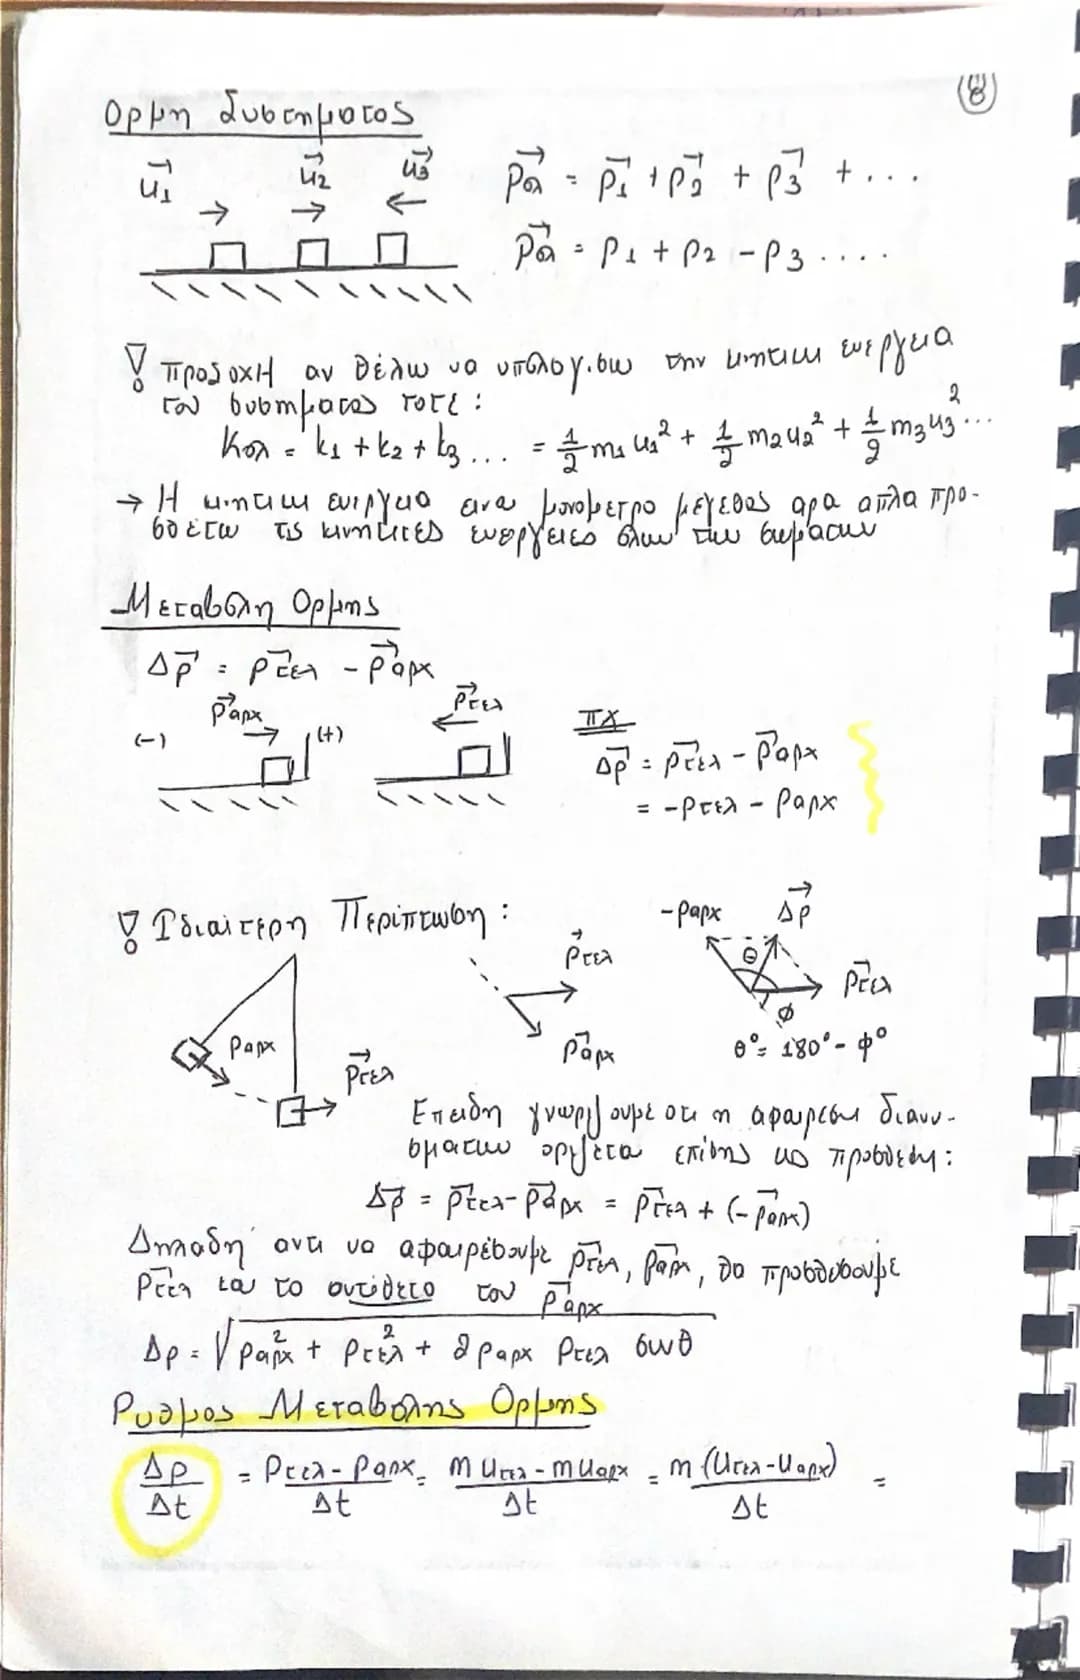 8
Ορμη Συστηματος
u⃗1 u⃗2 u⃗3
p⃗ολ = p⃗1 + p⃗2 + p⃗3 + ...
p⃗ολ = p1 + p2 - p3 ....
! ΠροσοχΗ αν θελω να υπολογισω την κινητικη ενεργεια
του συστηματος τοτε:
Κολ = k1 + k2 + k3 ... = 1/2 m1 u1² + 1/2 m2 u2² + 1/2 m3 u3² ...
→ Η κινητικη ενεργεια ειναι μονομετρο μεγεθος αρα απλα προ-
σθετω τις κινητικες ενεργειες ολων των σωματων
Μεταβολη Ορμης
Δp⃗ = p⃗τελ - p⃗αρχ
p⃗αρχ p⃗τελ
(-) (+)
πχ
Δp⃗ = p⃗τελ - p⃗αρχ
= -pτελ - pαρχ
! Ιδιαιτερη Περιπτωση:
-pαρχ Δp⃗
p⃗τελ
θ
p⃗τελ
φ
pαρχ
p⃗αρχ
θ° = 180° - φ°
p⃗τελ
Επειδη γνωριζουμε οτι η αφαιρεση διανυ-
σματων οριζεται επισης ως προσθεση:
Δp⃗ = p⃗τελ - p⃗αρχ = p⃗τελ + (-p⃗αρχ)
Δηλαδη αντι να αφαιρέσουμε p⃗τελ, p⃗αρχ, θα προσθεσουμε
p⃗τελ και το αντιθετο του p⃗αρχ
Δp = √pαρχ² + pτελ² + 2 pαρχ pτελ συνθ
Ρυθμος Μεταβολης Ορμης
Δp/Δt = pτελ - pαρχ/Δt = m uτελ - m uαρχ/Δt = m (uτελ - uαρχ)/Δt =